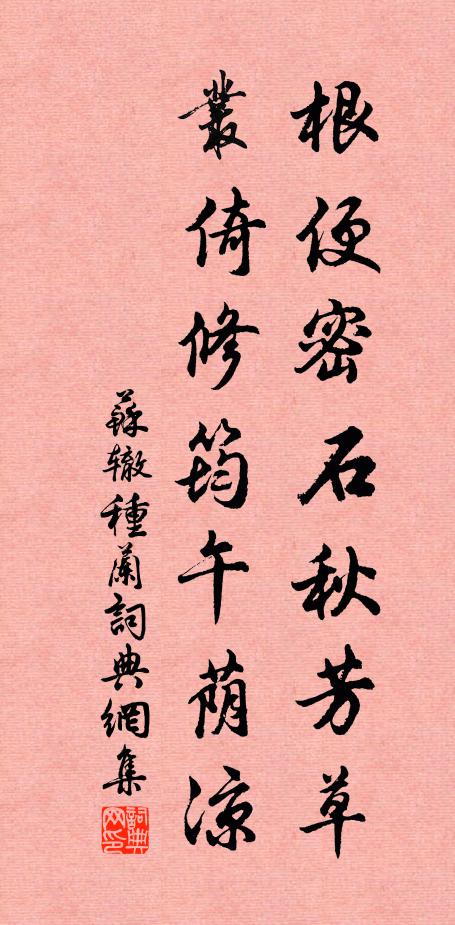 根便密石秋芳草
叢倚修筠午荫涼
蘇辙種蘭詞典網集
詞典
网印